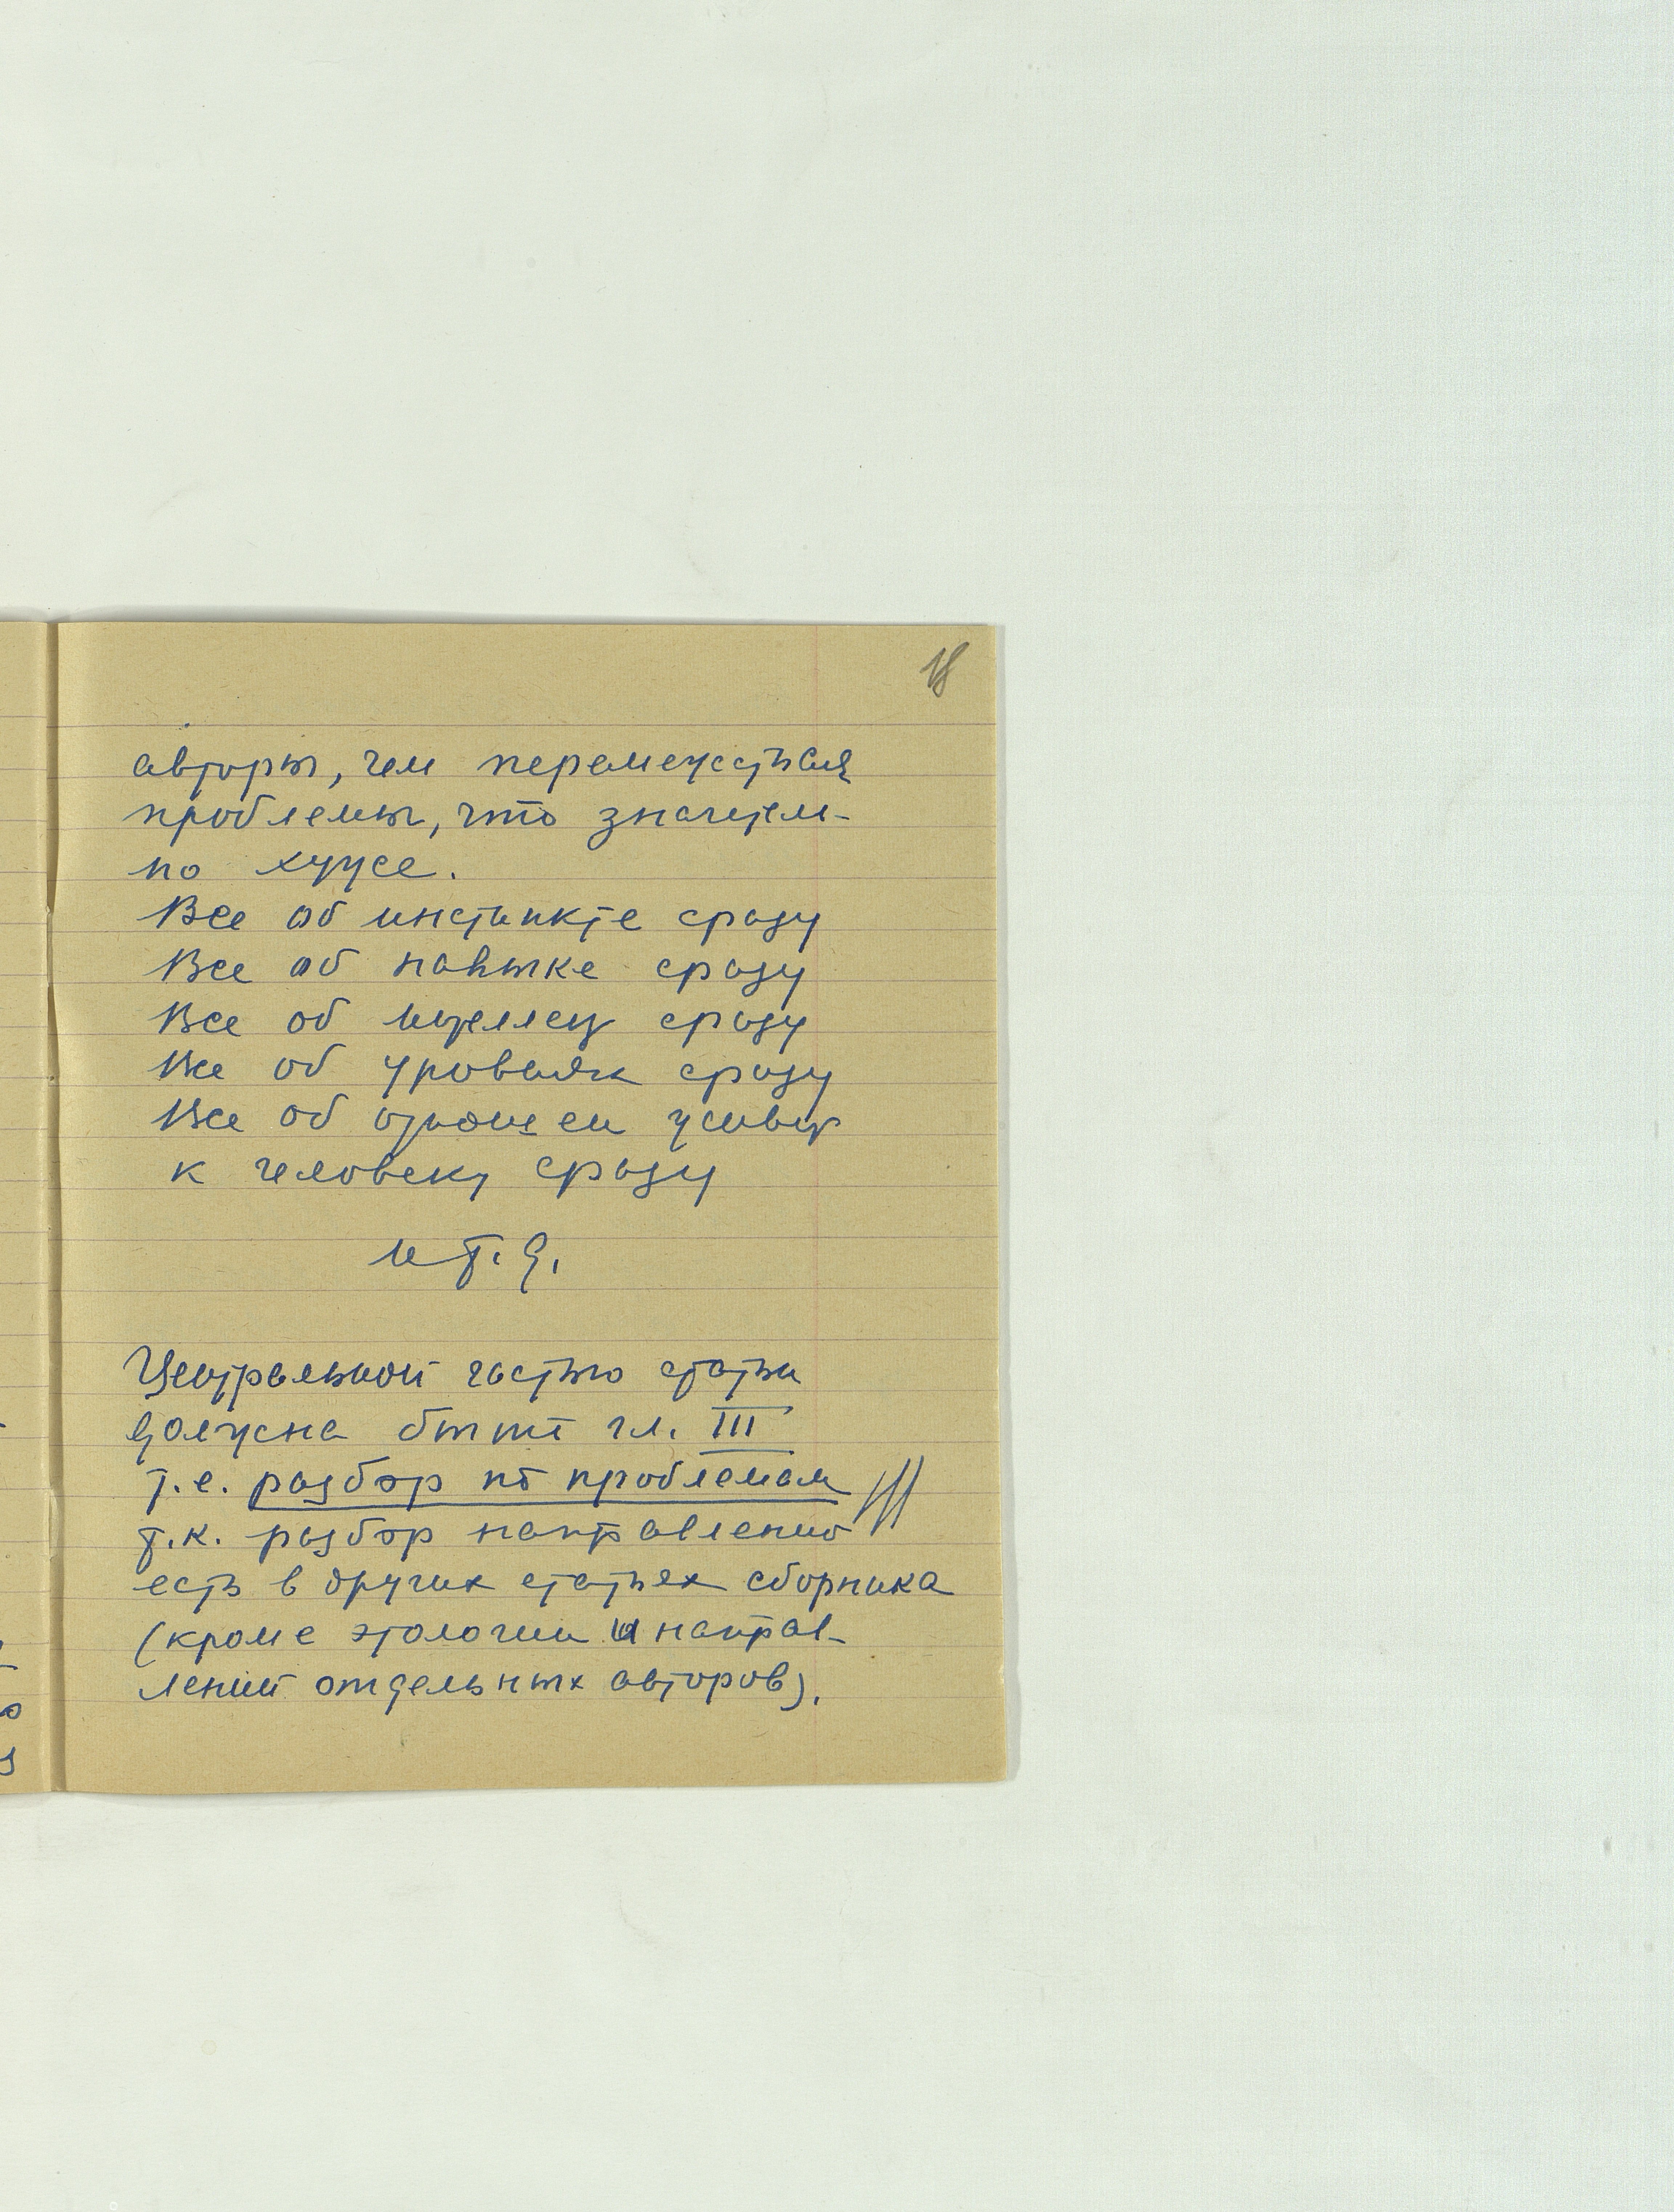 18
авторы, чем перемежаться
проблемы, что значительно
по хуже.
Все об инстинкте сразу
Все об навыке сразу
Все об интеллек сразу
Все об уровнях сразу
Все об отношен живот
к человеку сразу
и т. д.
Центральной частью статьи
должна быть гл. III
т.е. разбор по проблемам
т.к. разбор направлений
есть в других статьях сборника
(кроме этологии и направ-
лений отдельных авторов).